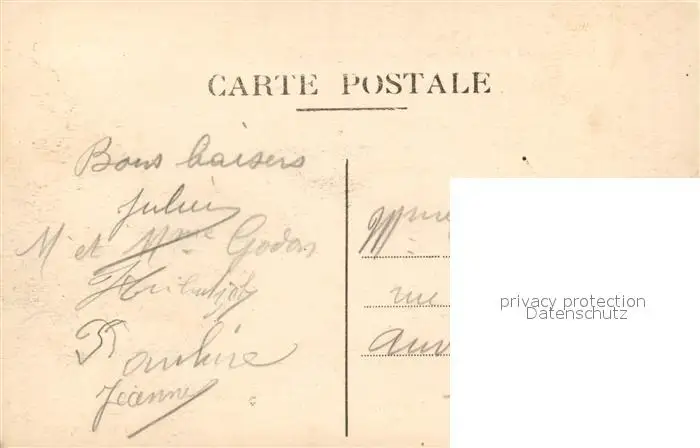 CARTE POSTALE
Bons baisers
Julien
M et Mme Godon
Pauline
Jeanne
Mme
rue
privacy protection
Datenschutz